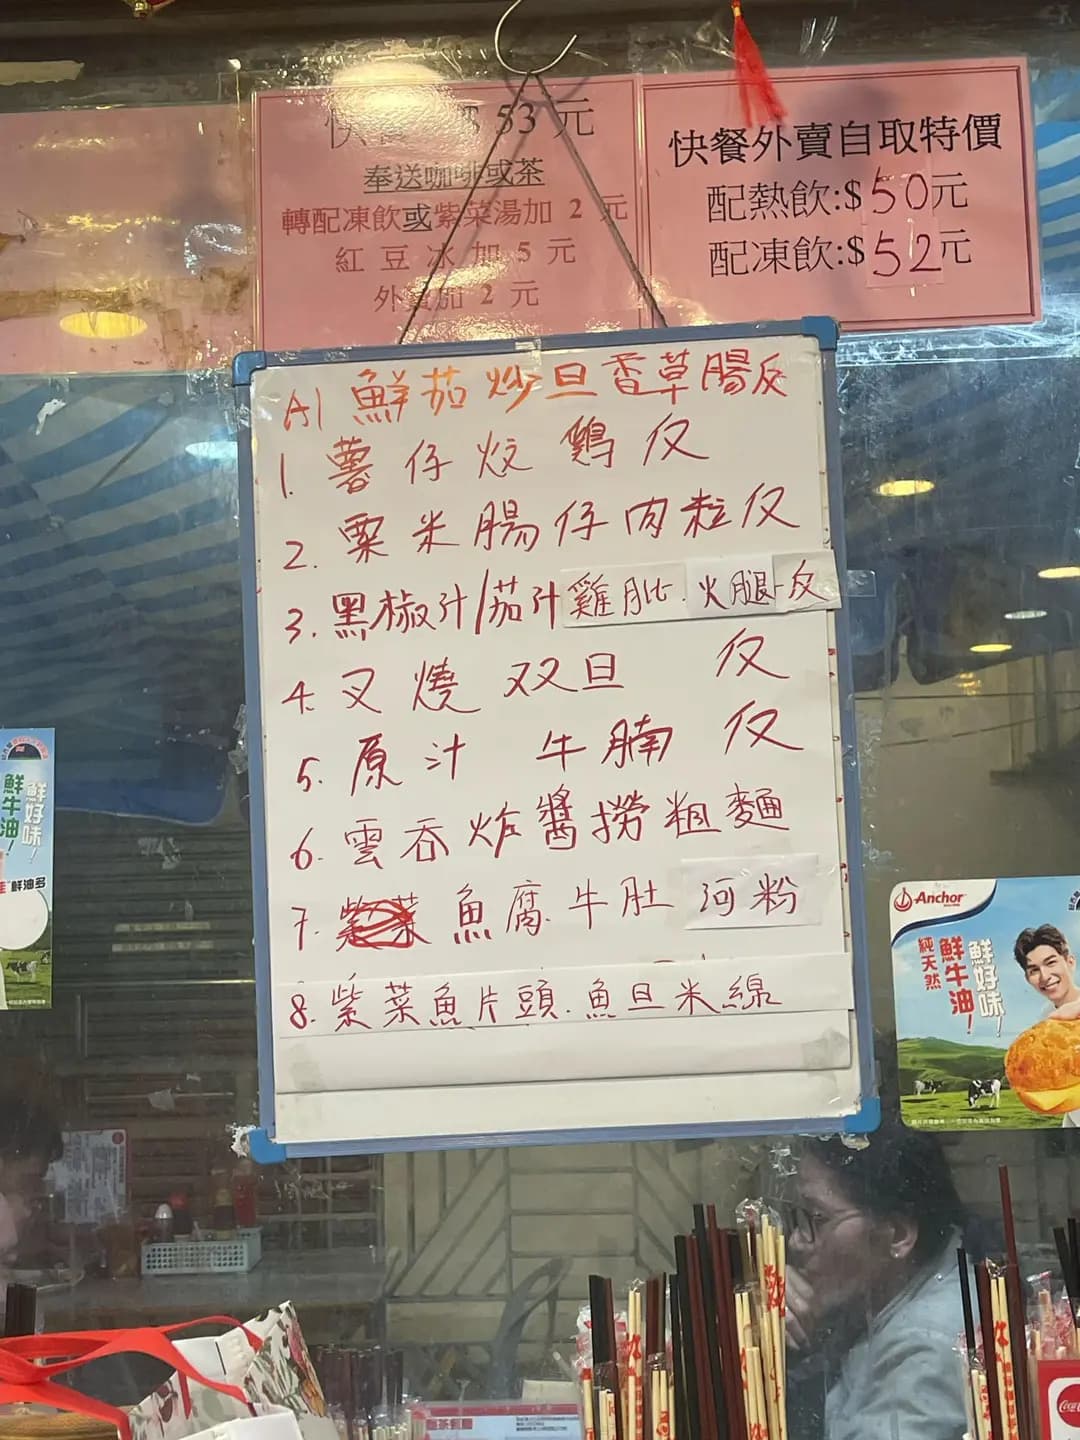 快餐 $53元
奉送咖啡或茶
轉配凍飲或紫菜湯加 2 元
紅豆冰加 5 元
外賣加 2 元
快餐外賣自取特價
配熱飲:$50元
配凍飲:$52元
A1 鮮茄炒旦香草腸反
1. 薯仔炆鷄反
2. 粟米腸仔肉粒反
3. 黑椒汁/茄汁雞肶.火腿反
4. 叉燒双旦 反
5. 原汁 牛腩 反
6. 雲吞炸醬撈粗麵
7. 魚腐.牛肚 河粉
8. 紫菜魚片頭.魚旦米線
鮮好味!
鮮牛油!
鮮油多
Anchor
鮮好味!
鮮牛油!
純天然